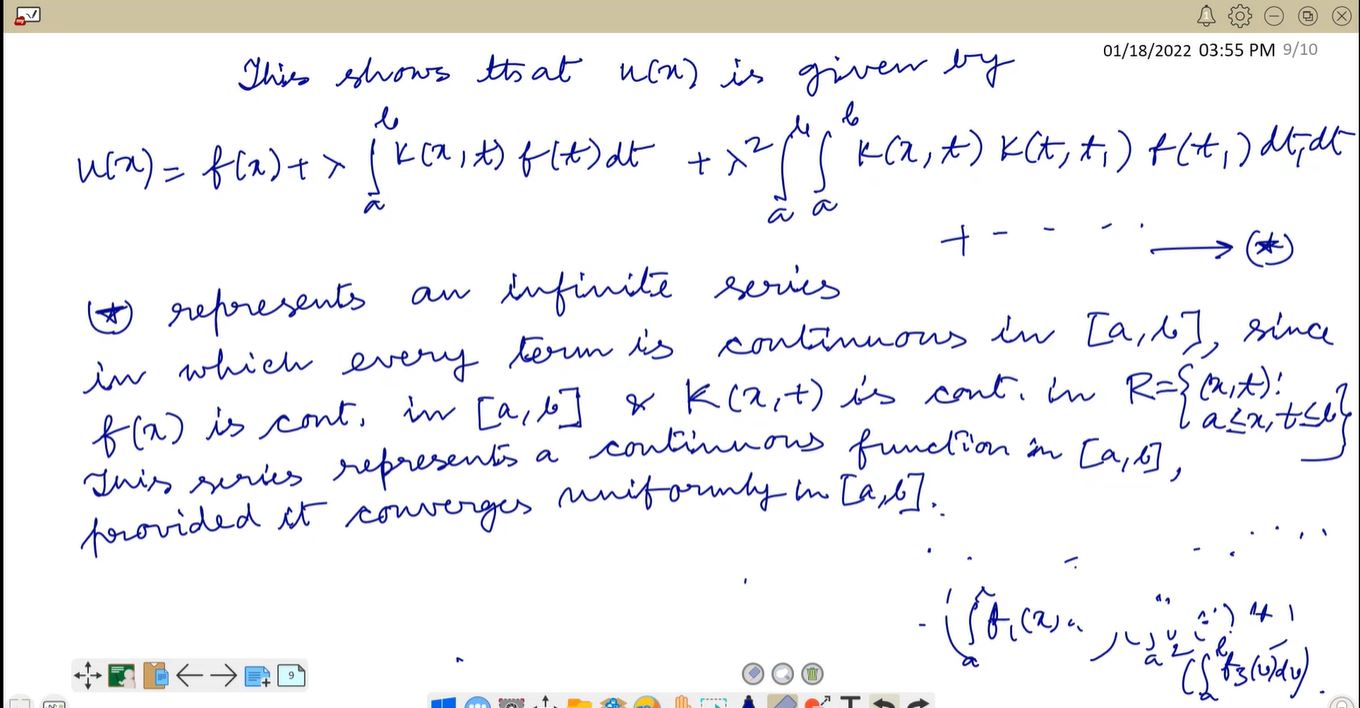 01/18/2022 03:55 PM 9/10
This shows that u(x) is given by
u(x) = f(x) + λ ∫_a^b K(x,t) f(t) dt + λ² ∫_a^b ∫_a^b K(x,t) K(t,t₁) f(t₁) dt₁ dt
+ - - - . . ⟶ (★)
(★) represents an infinite series
in which every term is continuous in [a,b], since
f(x) is cont. in [a,b] & K(x,t) is cont. in R = {(x,t): a ≤ x, t ≤ b}
This series represents a continuous function in [a,b],
provided it converges uniformly in [a,b].
(∫_a f₁(x)
(∫_a^b f₃(v)dv).
9